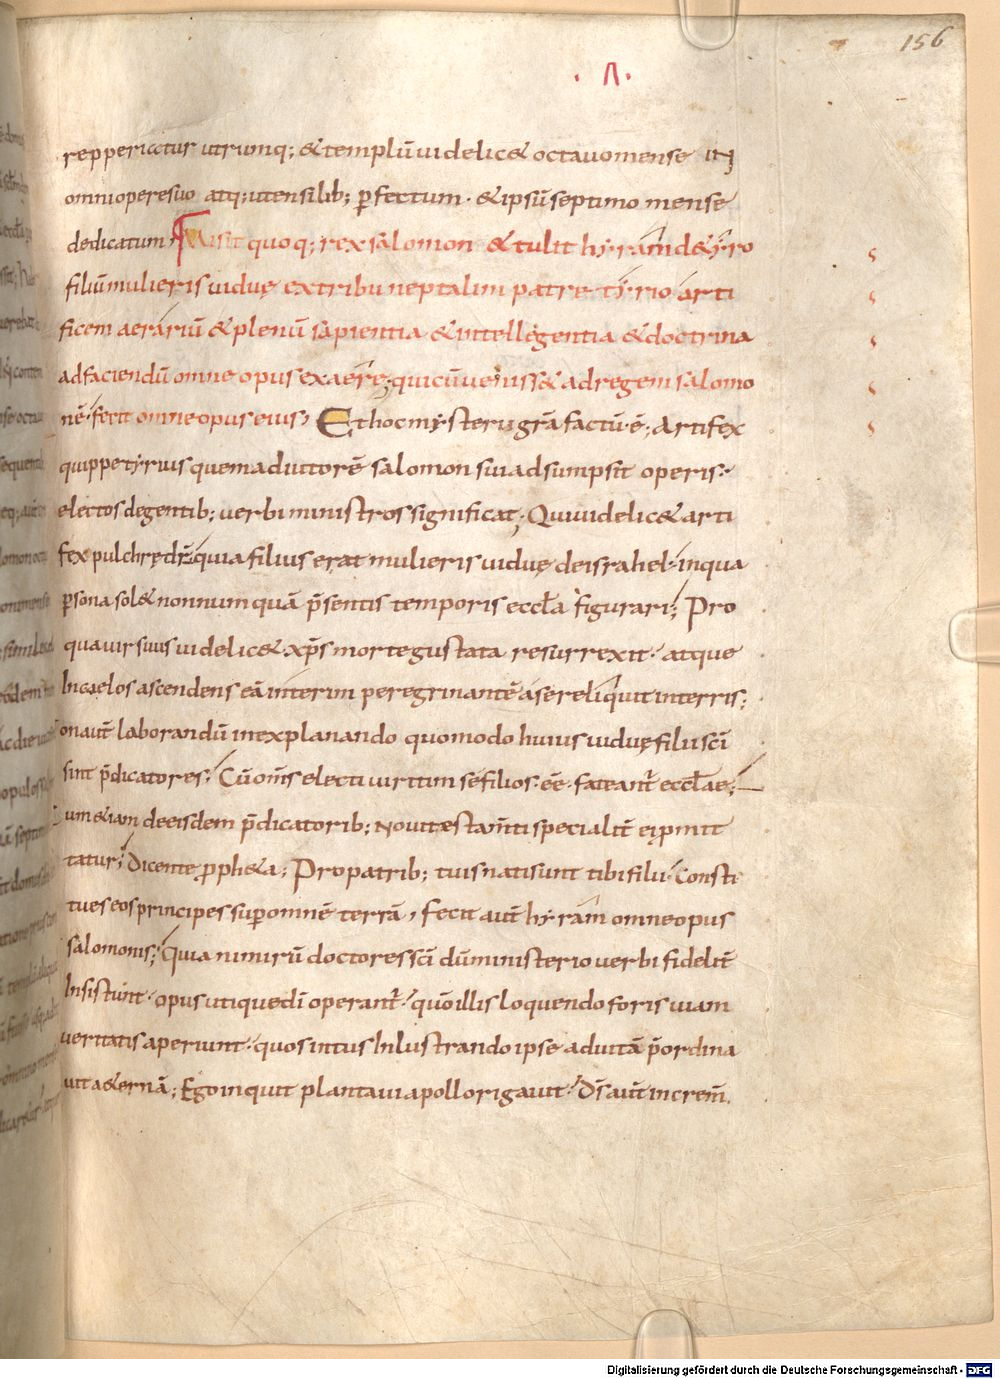 156
· Λ ·
repperiatur utrumq; & templū uidelic& octauo mense IN
omni opere suo atq; utensilib; ꝑfectum · & ipsū septimo mense
dedicatum; Misit quoq; rex salomon & tulit hyram de tyro
filiū mulieris uiduę ex tribu neptalim patre tyrio arti
ficem aerariū & plenū sapientia & intellegentia & doctrina
ad faciendū omne opus ex aere; qui cū ueniss& ad regem salomo
nē · fecit omne opus eius; Et hoc mysterii grā factū ē; Artifex
quippe tyrius quem adiutorē salomon sui adsumpsit operis ·
electos de gentib; uerbi ministros significat; Qui uidelic& arti
fex pulchrę dr̄ quia filius erat mulieris uiduę de israhel · in qua
ꝑsona sol& nonnumquā p̄sentis temporis eccła figurari; Pro
qua uir suus uidelic& xp̄s morte gustata resurrexit · atque
In caelos ascendens eā interim peregrinantē a se reliquit in terris;
on aut̄ laborandū in explanando quomodo huius uiduę filii sc̄i
sint p̄dicatores; Cū om̄s electi uiritim se filios ·ēē· fateant̄ eccłae;
um &iam de eisdem p̄dicatorib; noui testam̄ti specialit̄ ei ꝓmit
tatur; Dicente ꝓph&a; Pro patrib; tuis nati sunt tibi filii · Consti
tues eos principes suꝑ omnē terrā, fecit aut̄ hyram omne opus
salomonis; Quia nimirū doctores sc̄i dū ministerio uerbi fidelit̄
Insistunt · opus utique dī operant̄ · quō illis loquendo foris uiam
ueritatis aperiunt · quos intus Inlustrando ipse ad uitā p̄ordina
uit a&ernā; Ego inquit plantaui apollo rigauit · Dš aut̄ increm̄.
Digitalisierung gefördert durch die Deutsche Forschungsgemeinschaft - DFG